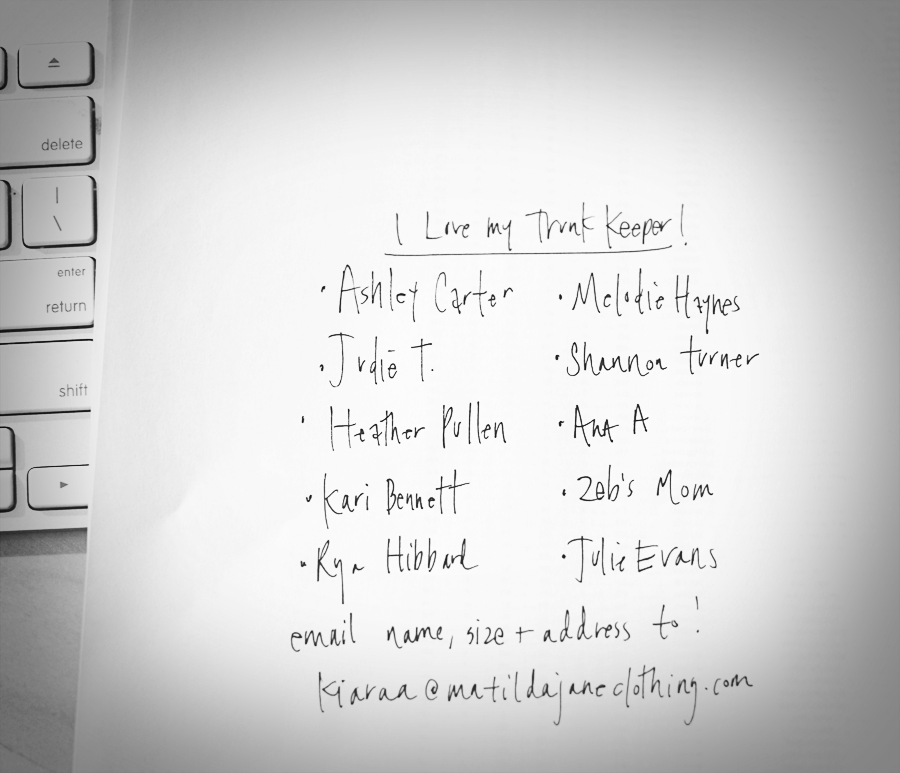 delete
|
\
enter
return
shift
I Love my Trunk Keeper!
· Ashley Carter · Melodie Haynes
· Jodie T. · Shannon turner
· Heather Pullen · Ana A
· Kari Bennett · Zeb's Mom
· Ryn Hibbard · Julie Evans
email name, size + address to!
kiaraa@matildajaneclothing.com